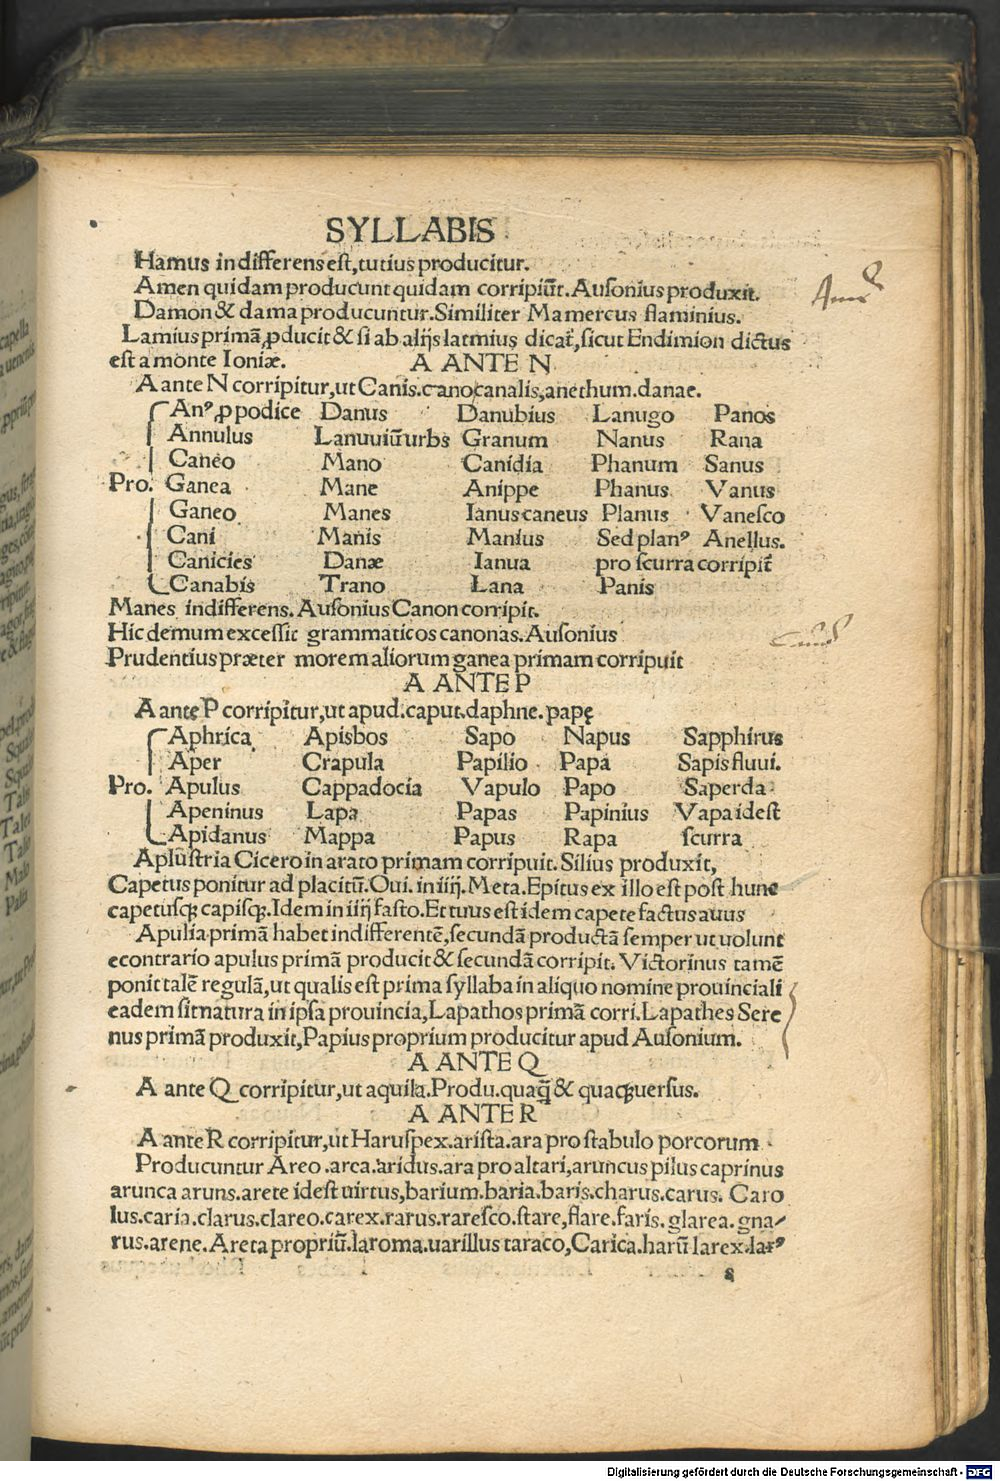 SYLLABIS
Hamus indifferens est, tutius producitur.
Amen quidam producunt quidam corripiūt. Ausonius produxit.
Damon & dama producuntur. Similiter Mamercus flaminius.
Lamius primā, ꝓducit & si ab alijs latmius dicat̄, sicut Endimion dictus
est a monte Ioniæ.
A ANTE N
A ante N corripitur, ut Canis. cano, canalis, anethum. danae.
Anꝰ, ꝓ podice Danus Danubius Lanugo Panos
Annulus Lanuuiū urbs Granum Nanus Rana
Caneo Mano Canidia Phanum Sanus
Pro. Ganea Mane Anippe Phanus Vanus
Ganeo Manes Ianus caneus Planus Vanesco
Cani Manis Manius Sed planꝰ Anellus.
Canicies Danæ Ianua pro scurra corripit̄
Canabis Trano Lana Panis
Manes indifferens. Ausonius Canon corripit.
Hic demum excessit grammaticos canonas. Ausonius
Prudentius præter morem aliorum ganea primam corripuit
A ANTE P
A ante P corripitur, ut apud. caput. daphne. papę
Aphrica Apisbos Sapo Napus Sapphirus
Aper Crapula Papilio Papa Sapis fluui.
Pro. Apulus Cappadocia Vapulo Papo Saperda
Apeninus Lapa Papas Papinius Vapa idest
Apidanus Mappa Papus Rapa scurra
Aplustria Cicero in arato primam corripuit. Silius produxit,
Capetus ponitur ad placitū. Oui. in iiij. Meta. Epitus ex illo est post hunc
capetusqꝫ capisqꝫ. Idem in iiij fasto. Et tuus est idem capete factus auus
Apulia primā habet indifferentē, secundā productā semper ut uolunt
econtrario apulus primā producit & secundā corripit. Victorinus tamē
ponit talē regulā, ut qualis est prima syllaba in aliquo nomine prouinciali
eadem sit natura in ipsa prouincia, Lapathos primā corri. Lapathes Sere
nus primā produxit, Papius proprium producitur apud Ausonium.
A ANTE Q
A ante Q corripitur, ut aquila. Produ. quaq̄ & quaqꝫuersus.
A ANTE R
A ante R corripitur, ut Haruspex. arista. ara pro stabulo porcorum
Producuntur Areo. arca. aridus. ara pro altari, aruncus pilus caprinus
arunca aruns. arete idest uirtus, barium. baria. baris. charus. carus. Caro
lus. caria. clarus. clareo. carex. rarus. raresco. stare, flare. faris. glarea. gna⸗
rus. arene. Areta propriū. laroma. uarillus taraco, Carica. harū larex. larꝰ
s
Digitalisierung gefördert durch die Deutsche Forschungsgemeinschaft - DFG